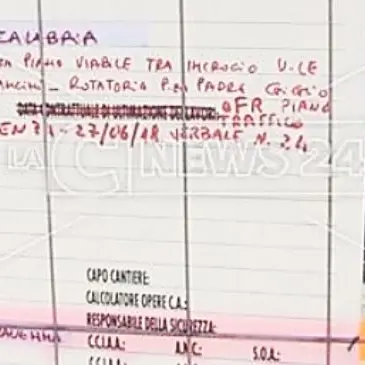 CALABRIA
PIANO VIABILE TRA INCROCIO V.LE
MANCINI - ROTATORIA P.ZA PADRE GIGGIO
DATA CONTRATTUALE DI ULTIMAZIONE DEI LAVORI: OFR PIANO
TRAFFICO
27/06/18 VERBALE N. 24
LAC NEWS 24
CAPO CANTIERE:
CALCOLATORE OPERE C.A.:
RESPONSABILE DELLA SICUREZZA:
C.C.I.A.A.: A.N.C.: S.O.A.:
C.C.I.A.A.: